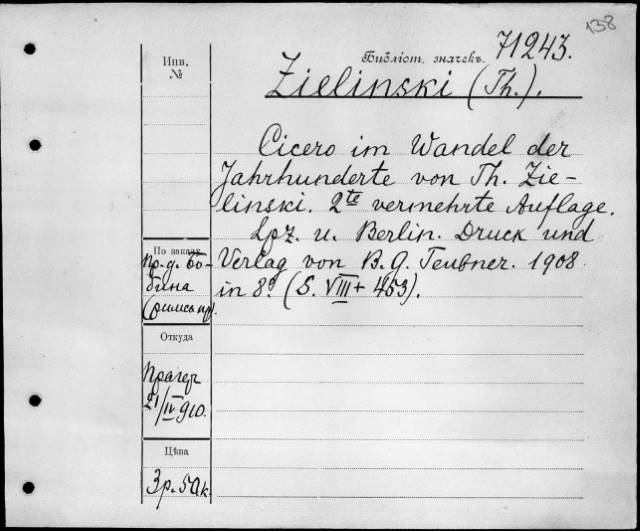 138
Инв. №
Библіот. значекъ. 71243.
Zielinski (Th.).
Cicero im Wandel der
Jahrhunderte von Th. Zie-
linski. 2te vermehrte Auflage.
Lpz. u. Berlin. Druck und
Verlag von B. G. Teubner. 1908
in 8º. (S. VIII + 453).
По заказу
пр-д. Бо-
бина
Откуда
Прагер
21/IV 910.
Цѣна
3 р. 50 к.